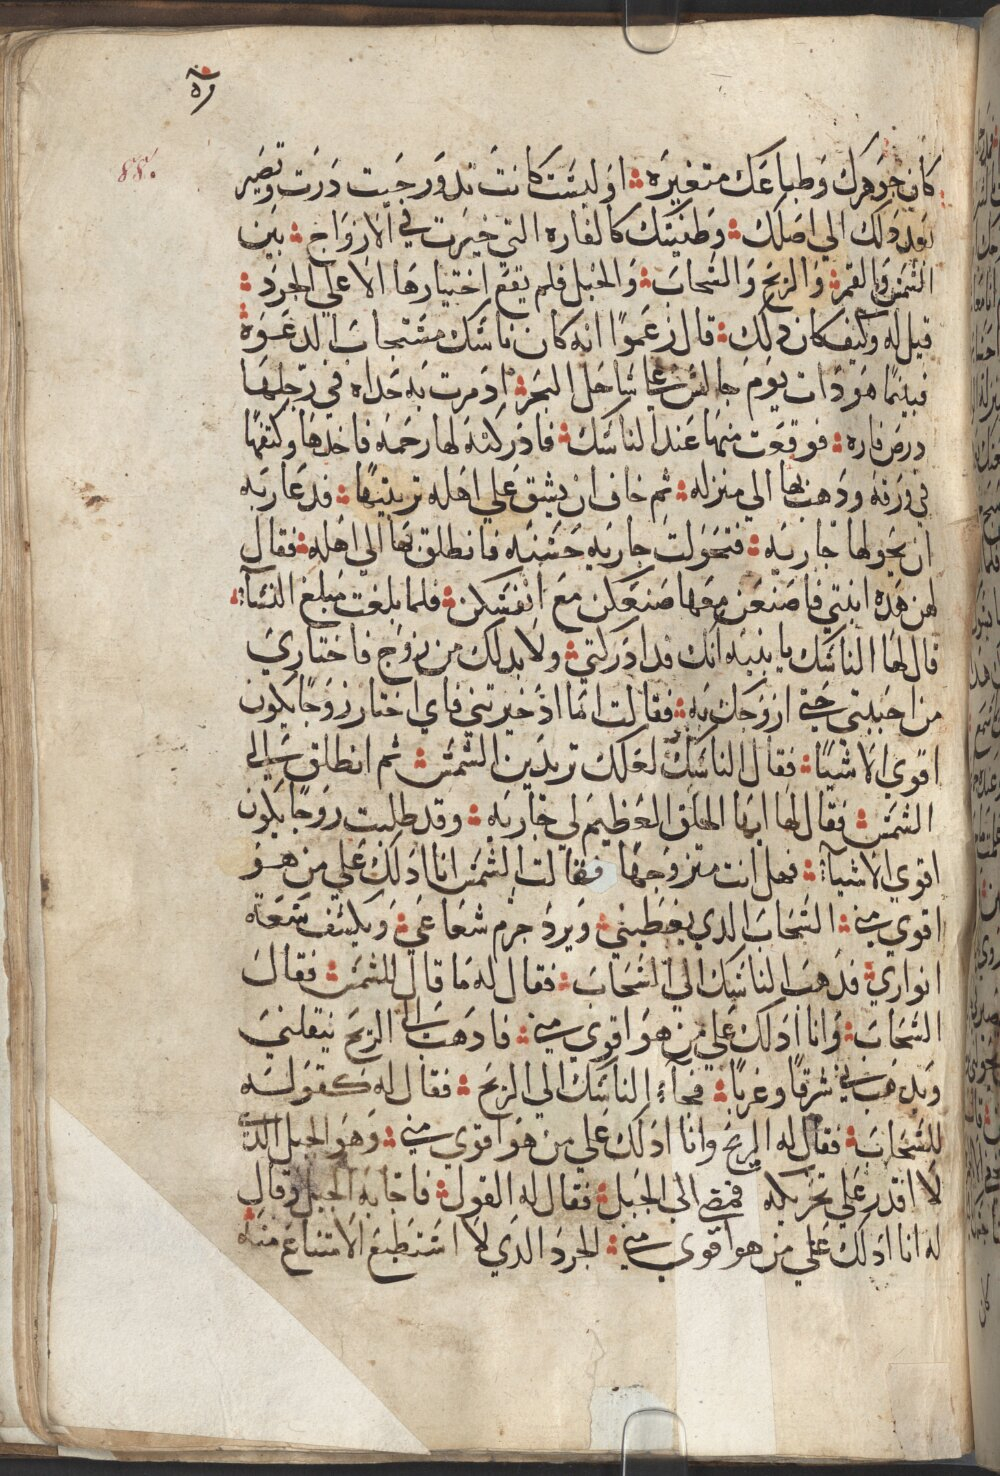 كان جوهرك وطباعك متغيره اوليست كانت تدور حيت درت وتصير
بعد دلك الي اصلك وطينتك كالفاره التي خيرت في الازواج بين
الشمس والقمر والريح والسحاب والجبل فلم يقع اختيارها الا علي الجرد
قيل له وكيف كان دلك قال زعموا انه كان ناسك مستجاب الدعوه
فبينما هو دات يوم جالس علي ساحل البحر ادمرت به حداه في رجلها
درص فاره فوقعت منها عند الناسك فادركته لها رحمه فاخدها وكنفها
في ورقه ودهب بها الي منزله ثم خاف ان يشق علي اهله تربيتها فدعا ربه
ان يحولها جاريه فتحولت جاريه حسنه فانطلق بها الي اهله فقال
لهن هده ابنتي فاصنعن معها صنعكن مع انفسكن فلما بلغت مبلغ النسآء
قال لها الناسك يا بنيه انك قد ادركتي ولابد لك من زوج فاختاري
من احببتي حتي ازوجك به فقالت اما اد خيرتني فاي اختار زوجا يكون
اقوي الاشيا فقال الناسك لعلك تريدين الشمس ثم انطلق الي
الشمس فقال لها ايها الخلق العظيم لي جاريه وقد طلبت زوجا يكون
اقوي الاشيآء فهل انت متزوجها فقالت الشمس انا ادلك علي من هو
اقوي مني السحاب الدي يغطيني ويرد جرم شعاعي ويكسف شعة
انواري فدهب الناسك الي السحاب فقال له ما قال للشمس فقال
السحاب وانا ادلك علي من هو اقوي مني فادهب الي الريح تنقلني
وتدهب بي شرقا وغربا فجآء الناسك الي الريح فقال له كقوله
للسحاب فقال له الريح وانا ادلك علي من هو اقوي مني وهو الجبل الدي
لا اقدر علي تحريكه فمضي الي الجبل فقال له القول فاجابه الجبل وقال
له انا ادلك علي من هو اقوي مني الجرد الدي لا استطيع الامتناع منه